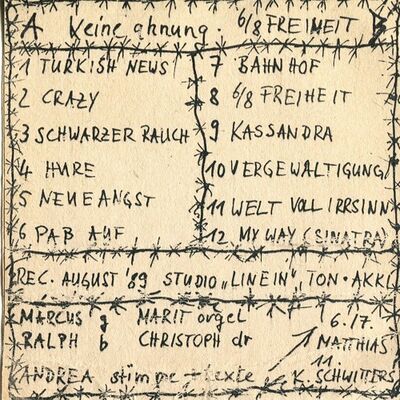 A Keine ahnung. 6/8 FREIHEIT B
1 TURKISH NEWS
2 CRAZY
3 SCHWARZER RAUCH
4 HURE
5 NEUE ANGST
6 PAß AUF
7 BAHNHOF
8 6/8 FREIHEIT
9 KASSANDRA
10 VERGEWALTIGUNG
11 WELT VOLL IRRSINN
12 MY WAY (SINATRA)
REC. AUGUST '89 STUDIO „LINE IN", TON · AKKI
MARCUS g MARIT orgel 6./7.
RALPH b CHRISTOPH dr MATTHIAS
11.
ANDREA stimme + texte K. SCHWITTERS